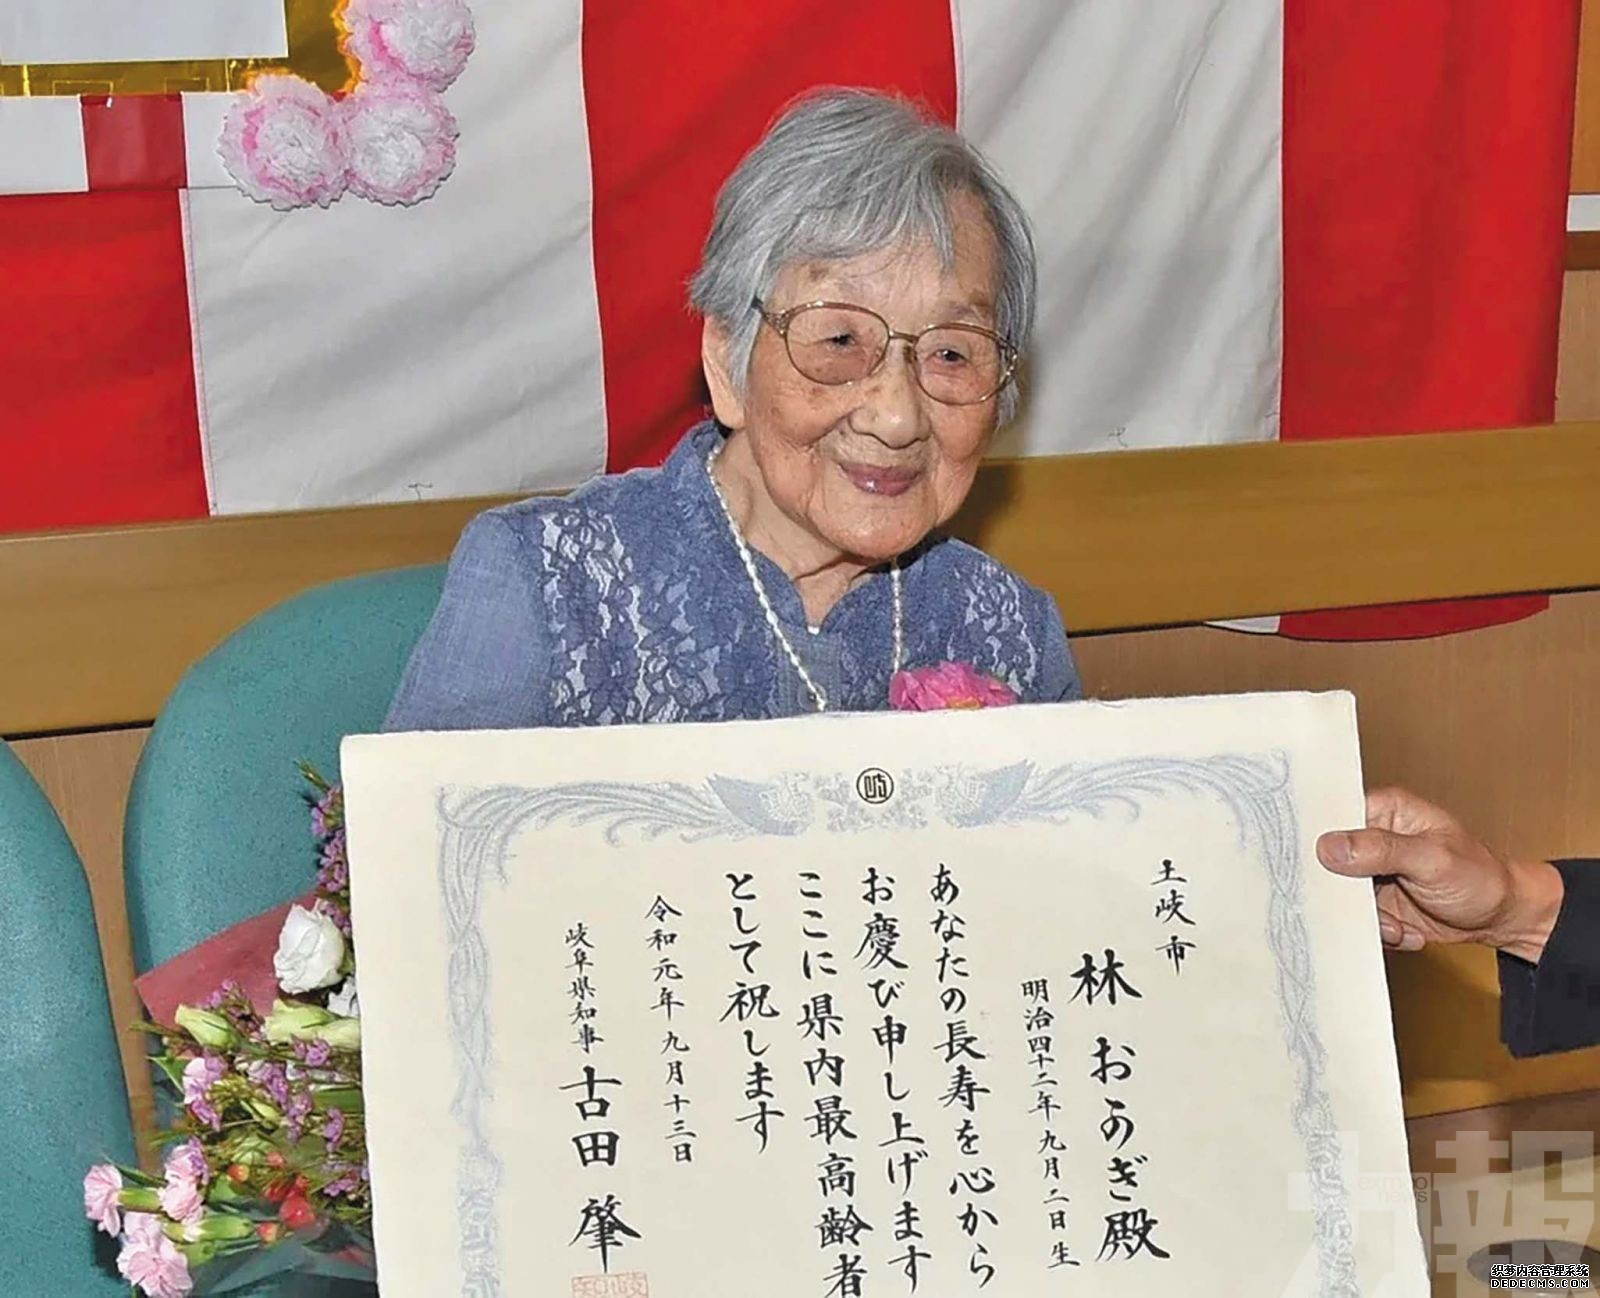 土岐市
林 おかぎ殿
明治四十二年九月二日生
あなたの長寿を心から
お慶び申し上げます
ここに県内最高齢者
として祝します
令和元年九月十三日
岐阜県知事 古田 肇
力報
exmoo
news
织梦内容管理系统
DEDECMS.COM